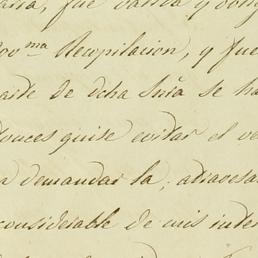 fue
Nov.ma Recopilacion, y fue
parte de dcha Sría se ha
tonces quise evitar el ve
a demandar la, atravesa
considerable de mis inter